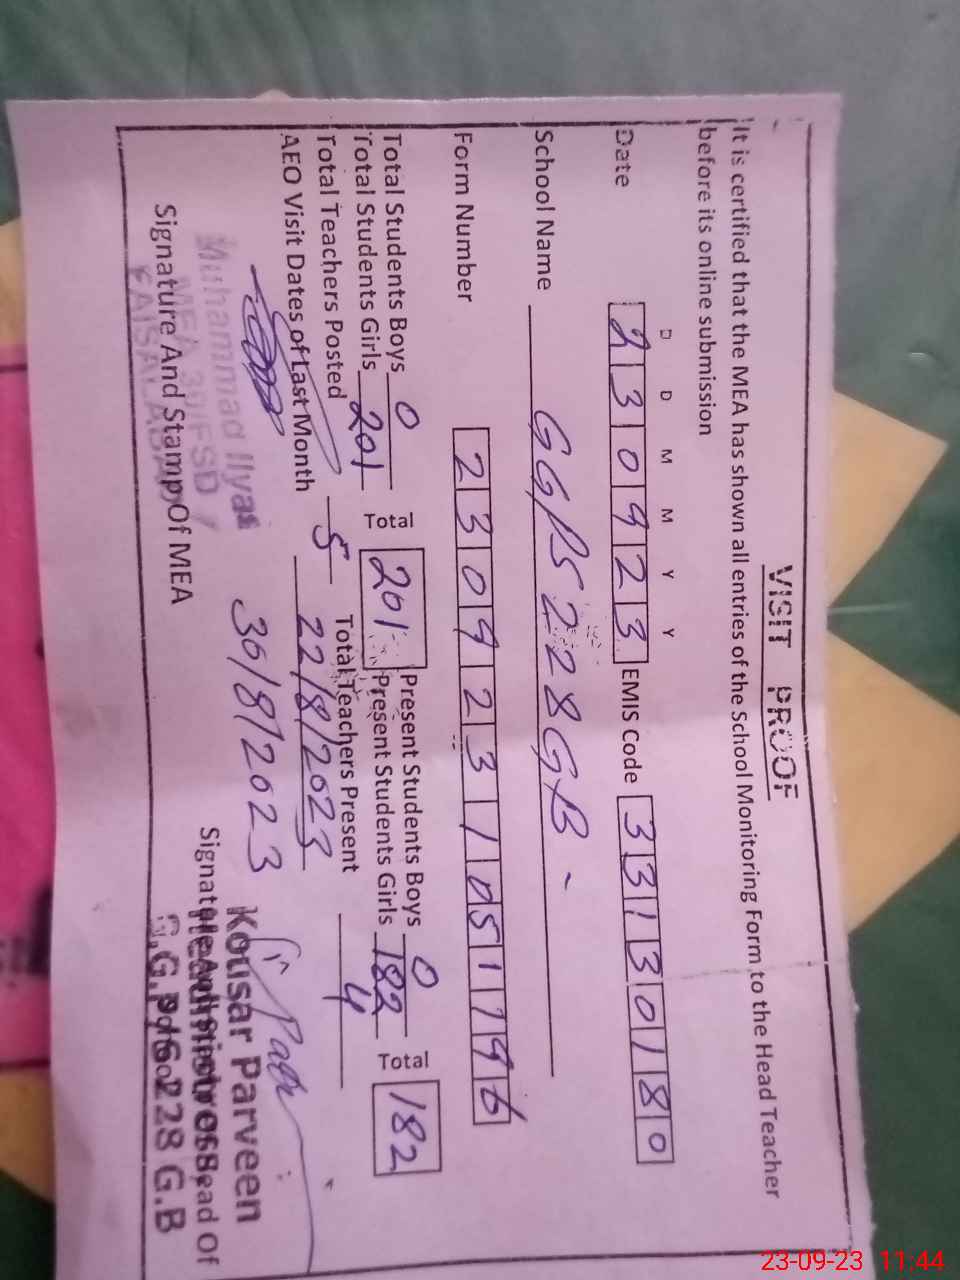 VISIT PROOF
It is certified that the MEA has shown all entries of the School Monitoring Form to the Head Teacher
before its online submission
D D M M Y Y
Date 230923 EMIS Code 33130180
School Name GGPS 228 GB
Form Number 2309231051796
Total Students Boys 0 Total 201 Present Students Boys 0 Total 182
Total Students Girls 201 Present Students Girls 182
Total Teachers Posted 5 Total Teachers Present 4
AEO Visit Dates of Last Month 22/8/2023
30/8/2023
Muhammad Ilyas
MEA 39/FSD
FAISALABAD
Signature And Stamp Of MEA
Kousar Parveen
G.G.P/S.228 G.B
23-09-23 11:44